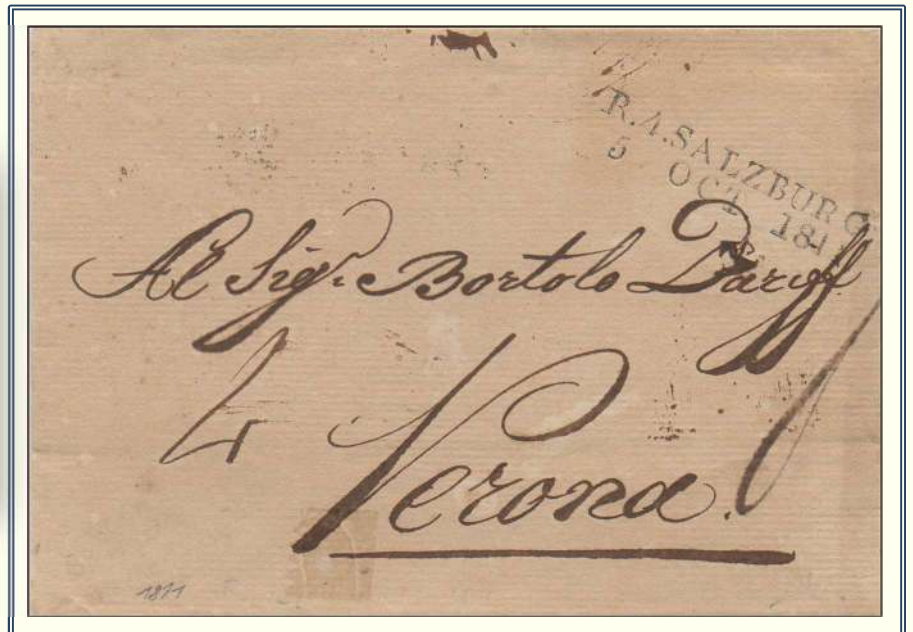 R.4.SALZBURG
5 OCT 181
Al Sig.r Bortolo
4
Verona.
1811